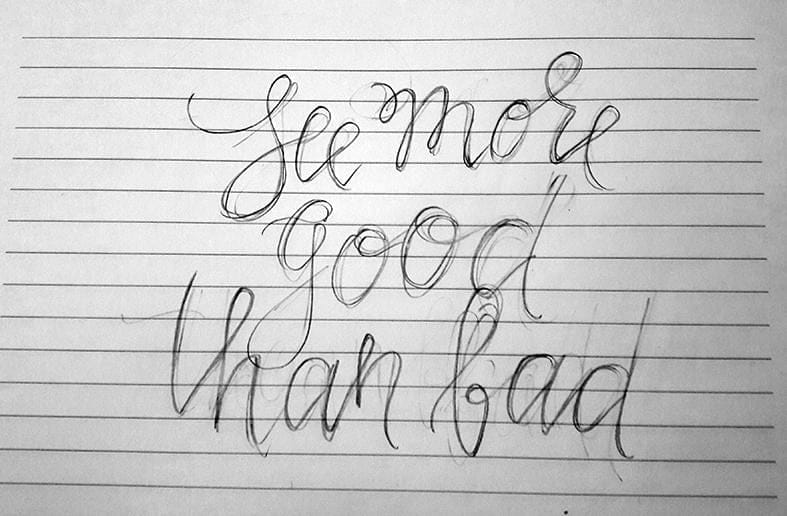 see more
good
than bad